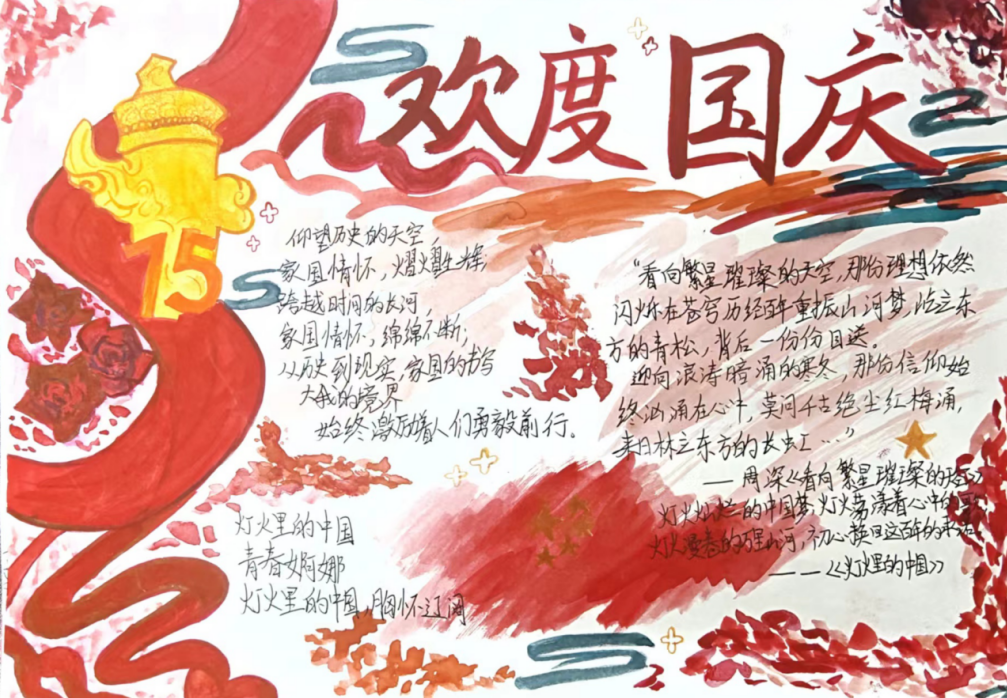 欢度国庆
75
仰望历史的天空，
家国情怀，熠熠生辉；
跨越时间的长河，
家国情怀，绵绵不断；
从历史到现实，家国的书写
大我的境界
始终激励着人们勇毅前行。
灯火里的中国
青春婀娜
灯火里的中国，胸怀辽阔
“看向繁星璀璨的天空，那份理想依然
闪烁在苍穹历经百年重振山河梦，屹立东
方的青松，背后一份份目送。
迎向浪涛暗涌的寒冬，那份信仰始
终汹涌在心中，莫问千古绝尘红梅涌，
来日林立东方的长虹……”
——周深《看向繁星璀璨的天空》
灯火灿烂的中国梦，灯火荡漾着心中的
灯火漫卷的万里山河，初心换回这百年的
——《灯火里的中国》